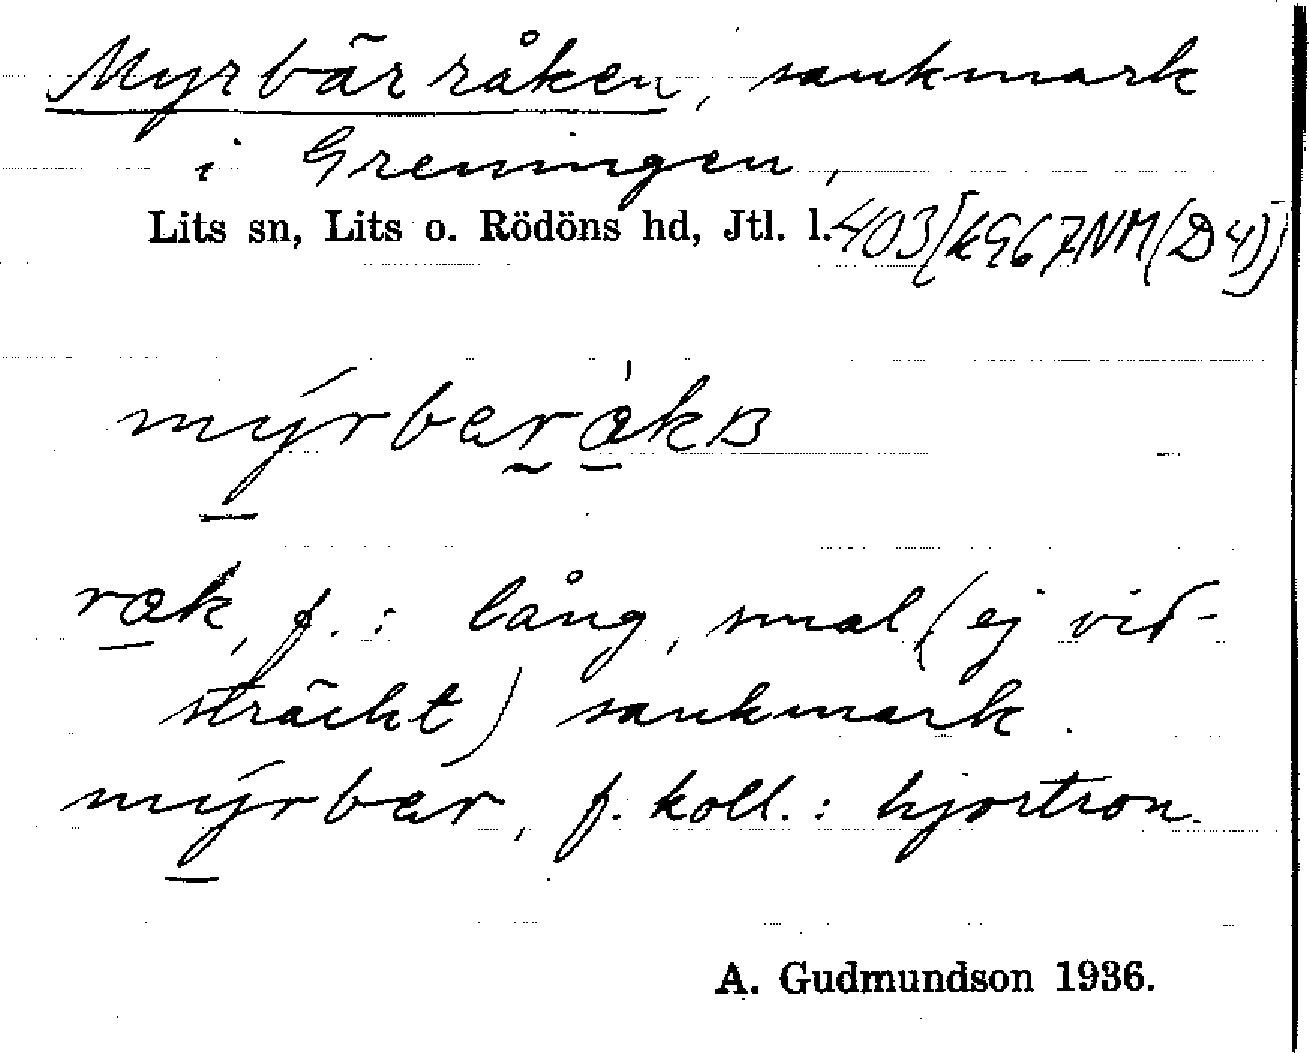 Myrbärråken, sankmark
i Greningen,
Lits sn, Lits o. Rödöns hd, Jtl. l. 403 [6967NM (D4)]
mýrberækʙ
ræk, f.: lång, smal (ej vid-
sträckt) sankmark.
mýrber, f. koll.: hjortron.
A. Gudmundson 1936.